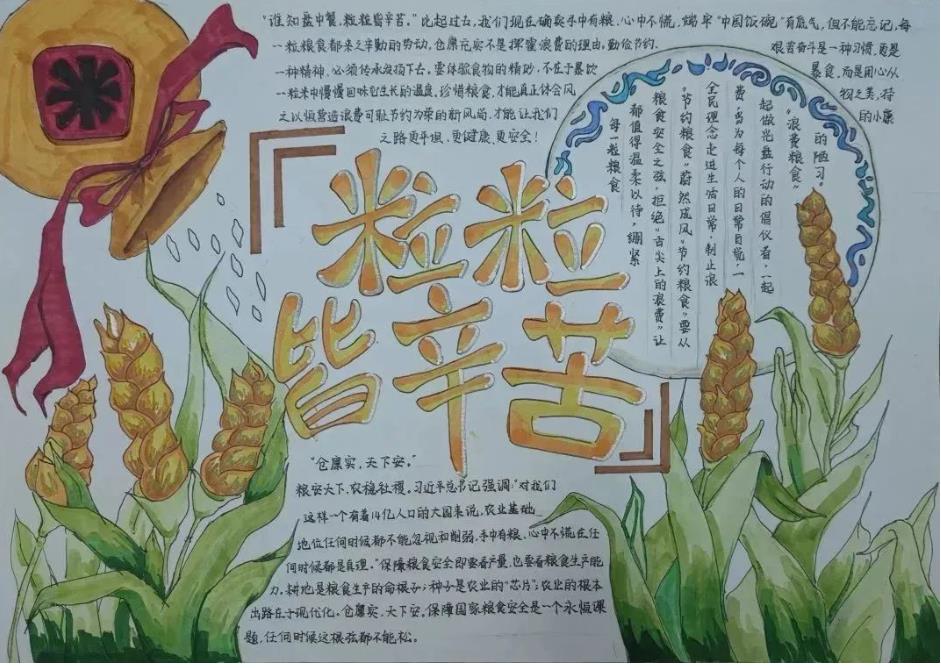 “谁知盘中餐，粒粒皆辛苦。”比起过去，我们现在确实手中有粮，心中不慌，端牢“中国饭碗”有底气，但不能忘记，每
一粒粮食都来之辛勤的劳动，仓廪充实不是挥霍浪费的理由，勤俭节约、艰苦奋斗是一种习惯，更是
一种精神，必须传承发扬下去。要体验食物的精妙，不在于暴饮暴食，而是用心从
一粒米中慢慢回味它生长的温度，珍惜粮食，才能真正体会风物之美，持
之以恒营造浪费可耻节约为荣的新风尚，才能让我们的小康
之路更平坦、更健康、更安全！
『粒粒
皆辛苦』
的陋习。
“浪费粮食”
起做光盘行动的倡议者，一起
费”当为每个人的日常自觉，一
全民理念走进生活日常，制止浪
“节约粮食”蔚然成风“节约粮食”要从
粮食安全之弦，拒绝“舌尖上的浪费”让
都值得温柔以待，绷紧
每一粒粮食
“仓廪实，天下安。”
粮安天下，农稳社稷。习近平总书记强调：“对我们
这样一个有着14亿人口的大国来说，农业基础
地位任何时候都不能忽视和削弱，手中有粮、心中不慌在任
何时候都是真理。”保障粮食安全即要看产量，也要看粮食生产能
力，耕地是粮食生产的命根子；种子是农业的“芯片”；农业的根本
出路在于现代化。仓廪实，天下安，保障国家粮食安全是一个永恒课
题，任何时候这根弦都不能松。